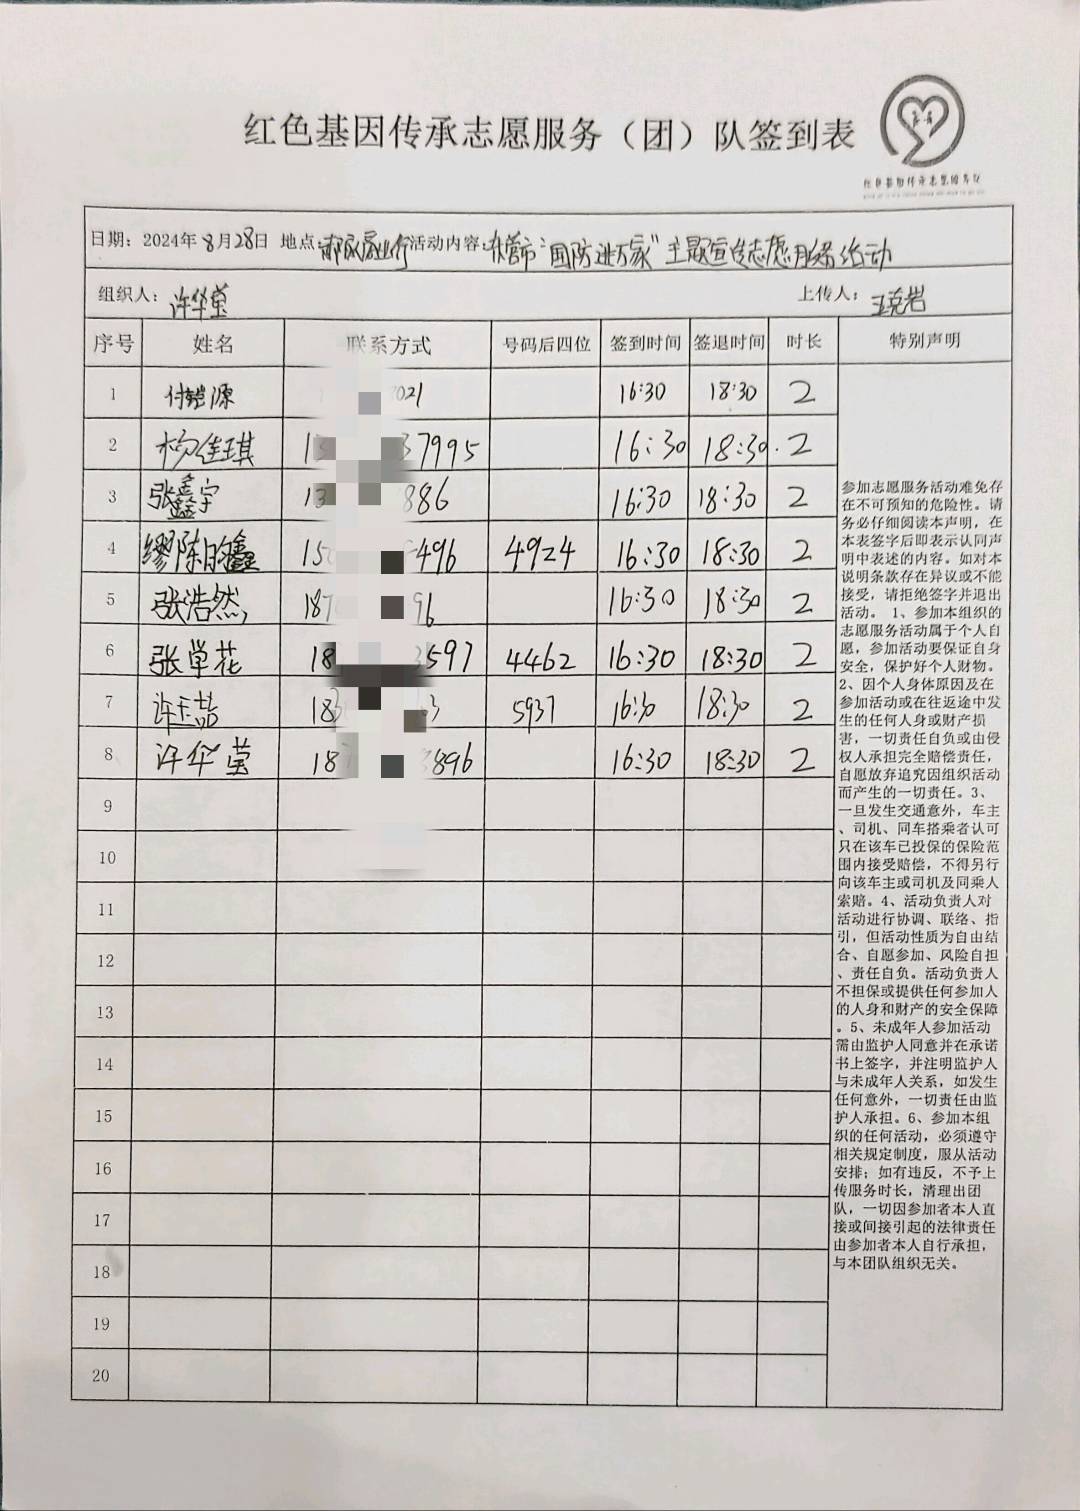 红色基因传承志愿服务（团）队签到表
红色基因传承志愿服务队
日期：2024年8月28日 地点： 活动内容：东营市"国防进万家"主题宣传志愿服务活动
组织人：许华莹 上传人：王克岩
序号 姓名 联系方式 号码后四位 签到时间 签退时间 时长 特别声明
1 付锴源 2021 16:30 18:30 2
2 杨佳琪 13 37995 16:30 18:30. 2
3 张鑫宇 13 886 16:30 18:30 2
4 缪陈昀鑫 15 496 4924 16:30 18:30 2
5 张浩然 187 96 16:30 18:30 2
6 张单花 18 3597 4462 16:30 18:30 2
7 许玉喆 183 3 5937 16:30 18:30 2
8 许华莹 18 3896 16:30 18:30 2
9
10
11
12
13
14
15
16
17
18
19
20
参加志愿服务活动难免存
在不可预知的危险性。请
务必仔细阅读本声明，在
本表签字后即表示认同声
明中表述的内容。如对本
说明条款存在异议或不能
接受，请拒绝签字并退出
活动。 1、参加本组织的
志愿服务活动属于个人自
愿，参加活动要保证自身
安全，保护好个人财物。
2、因个人身体原因及在
参加活动或在往返途中发
生的任何人身或财产损
害，一切责任自负或由侵
权人承担完全赔偿责任，
自愿放弃追究因组织活动
而产生的一切责任。3、
一旦发生交通意外，车主
、司机、同车搭乘者认可
只在该车已投保的保险范
围内接受赔偿，不得另行
向该车主或司机及同乘人
索赔。4、活动负责人对
活动进行协调、联络、指
引，但活动性质为自由结
合、自愿参加、风险自担
、责任自负。活动负责人
不担保或提供任何参加人
的人身和财产的安全保障
。5、未成年人参加活动
需由监护人同意并在承诺
书上签字，并注明监护人
与未成年人关系，如发生
任何意外，一切责任由监
护人承担。6、参加本组
织的任何活动，必须遵守
相关规定制度，服从活动
安排；如有违反，不予上
传服务时长，清理出团
队，一切因参加者本人直
接或间接引起的法律责任
由参加者本人自行承担，
与本团队组织无关。